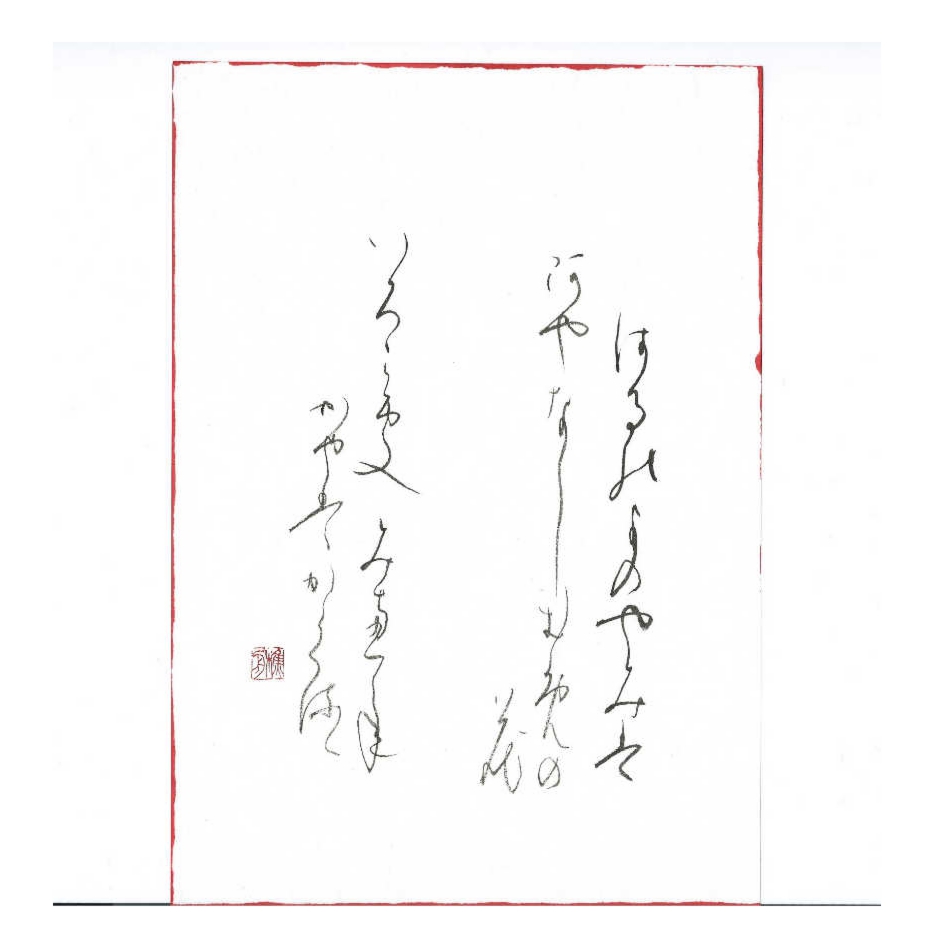 はる能よのやみ者
阿やなしむ免の
花
いろこそみえ年
かや者かくるゝ